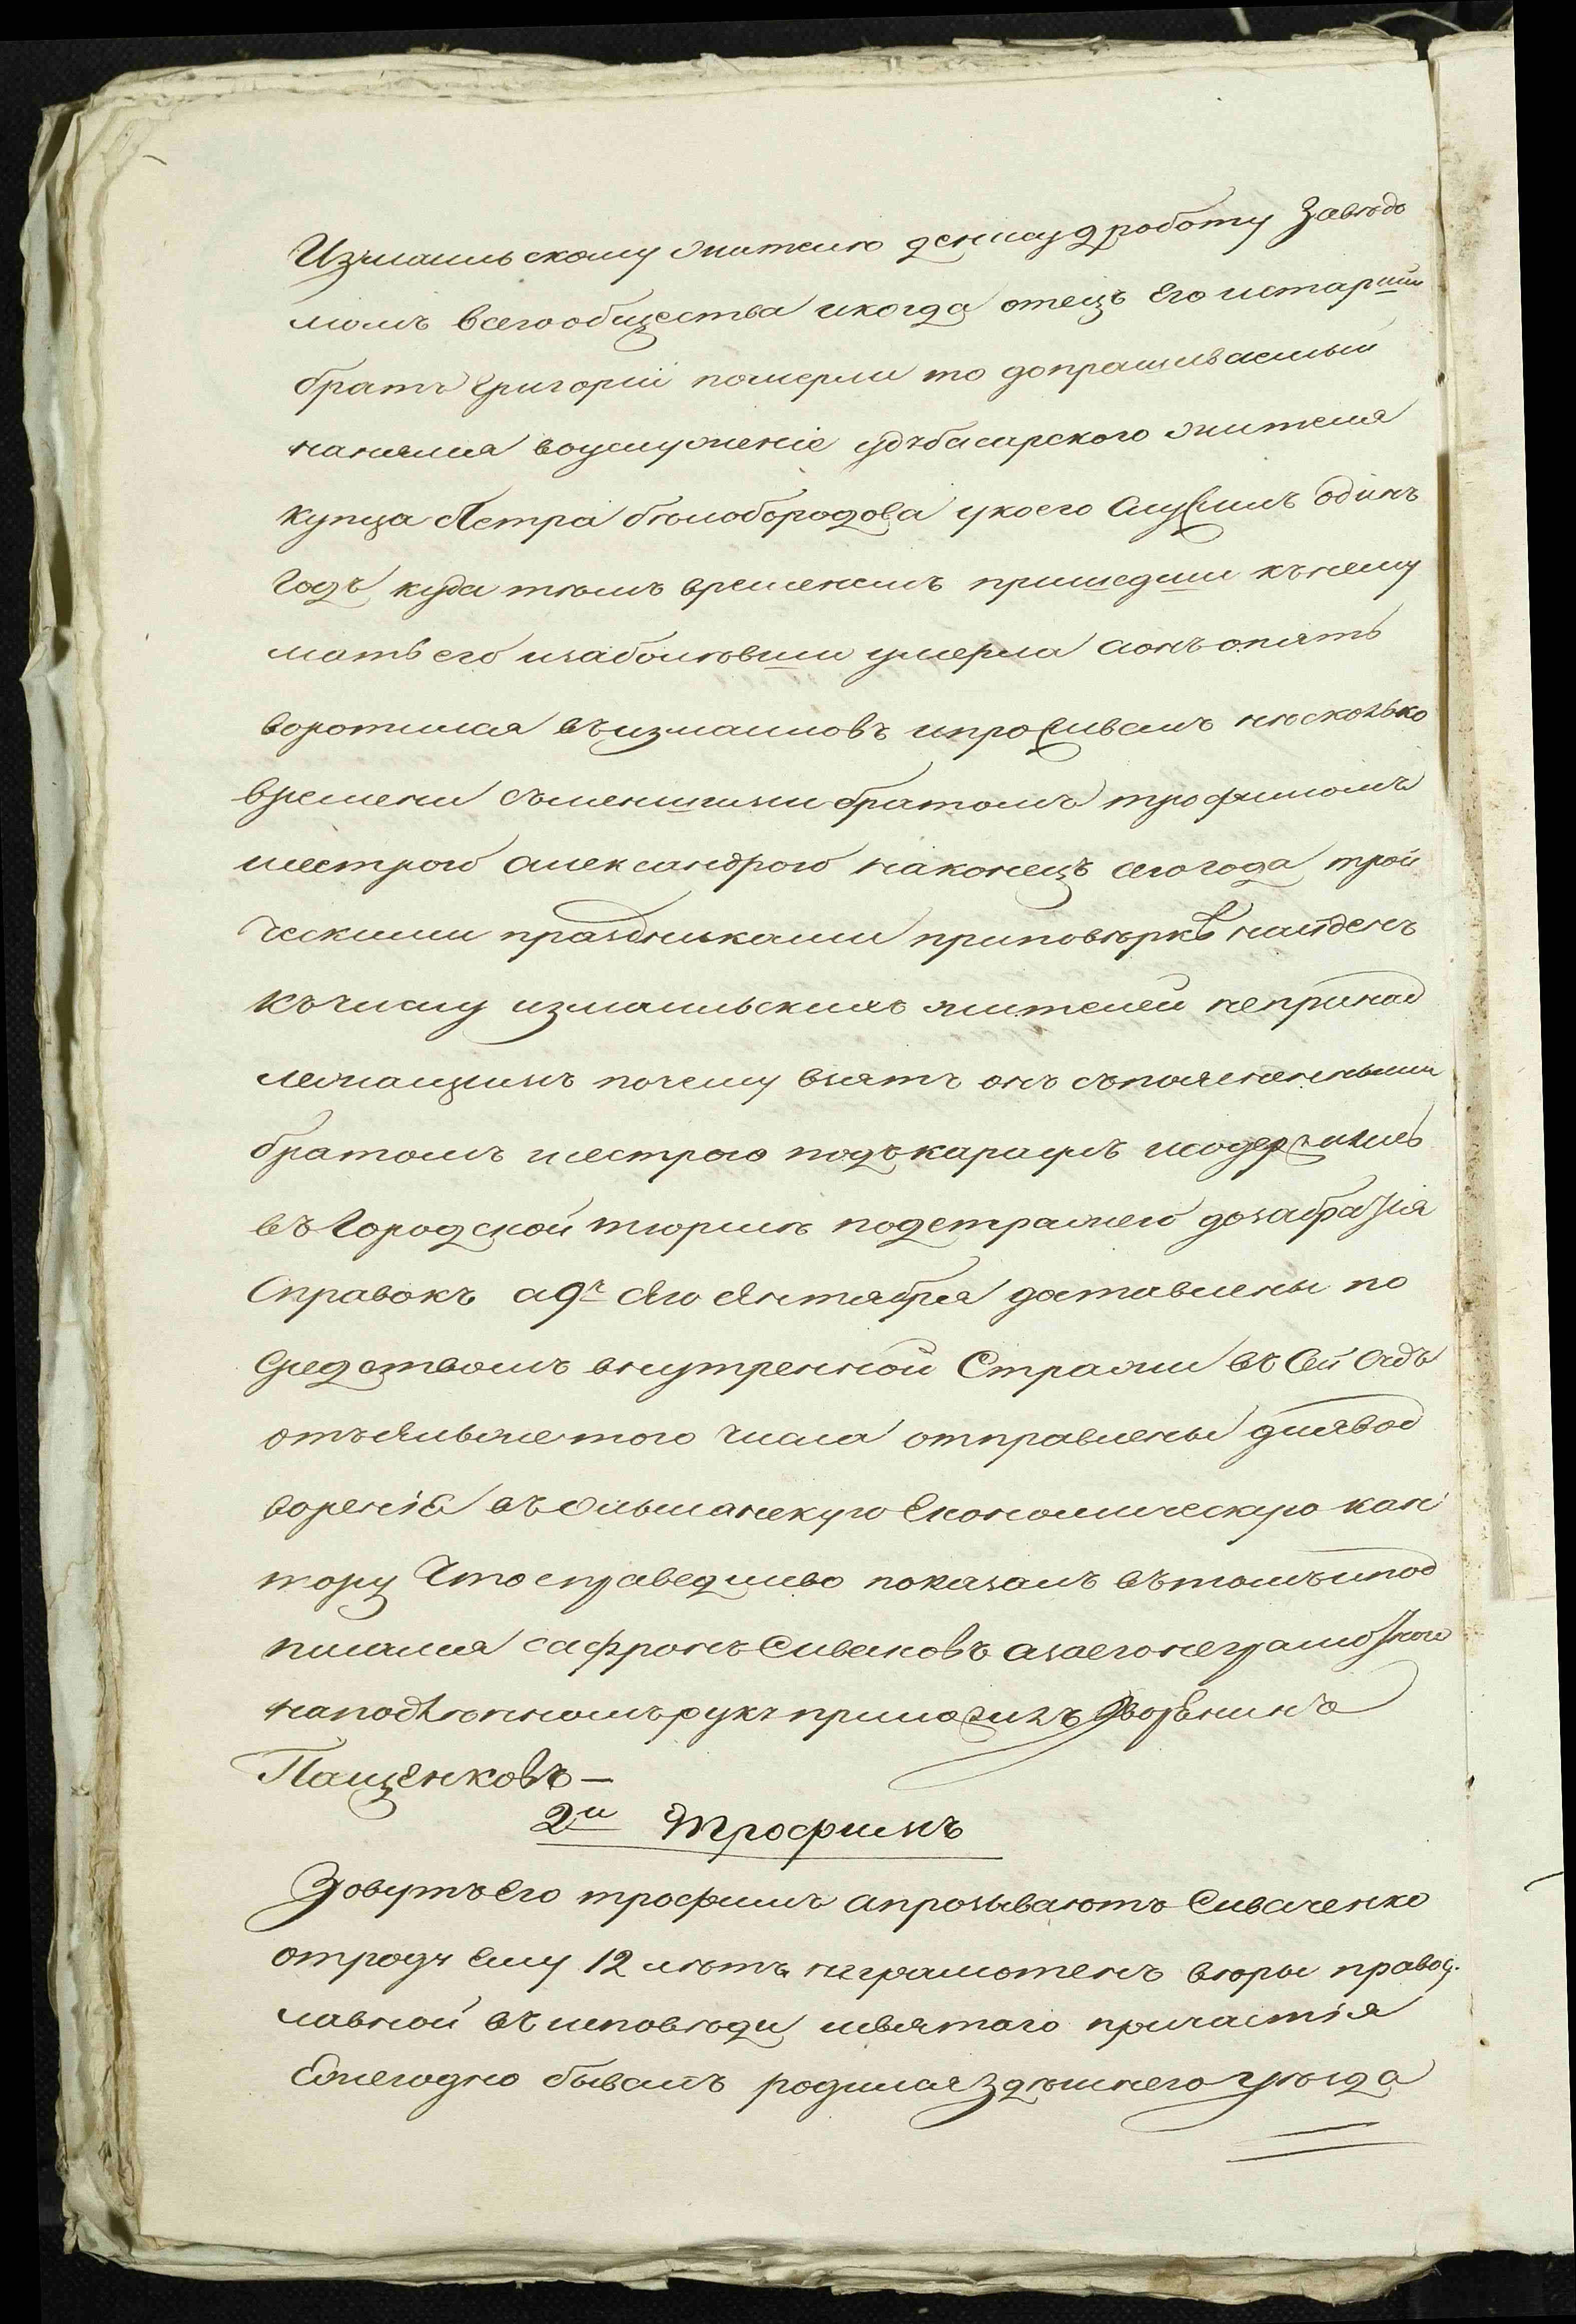 Измаильскому жителю денису дроботу Завѣдо
момъ всего общества икогда отецъ Его истарши
братъ Григорій померли то допрашиваемый
нанялся воуслуженіе удубасарского жителя
купца Петра бѣлобородова укоего Служилъ одинъ
Годъ, куда тѣмъ временемъ пришедши кънему
мать его изаболѣвши умерла аонъ опять
воротился въизмаиловъ ипроживалъ нѣсколько
времени съменшимъ братомъ трофимомъ
исестрою александрою наконецъ сего года трой
ческими праздниками приповѣркѣ найденъ
къчислу измаильскихъ жителей непринад
лежащимъ почему взятъ онъ съпоясненнымъ
братомъ исестрою подъкараулъ исодержались
въ Городской тюрмѣ подстражею дозабранія
Справокъ а 9г сего Октября доставлены по
Средствомъ внутренной Стражи въ Сей Судъ
откельже того числа отправлены длявод
воренія въ Ольшанскую Економическую кон
тору Что справедливо показалъ вътомъипод
писался сафронъ Сиваковъ азаегонеграмотного
наподлѣнномъ руку приложилъ Дворѣнинъ
Пащенковъ —
2й Трофимъ
Зовутъ Его трофимъ апрозываютъ Сиваченко
отроду Ему 12 лѣтъ, неграмотенъ вѣры правос.
лавной въ исповѣди исвятаго причастія
Ежегодно бывалъ родился здѣшнего уѣзда